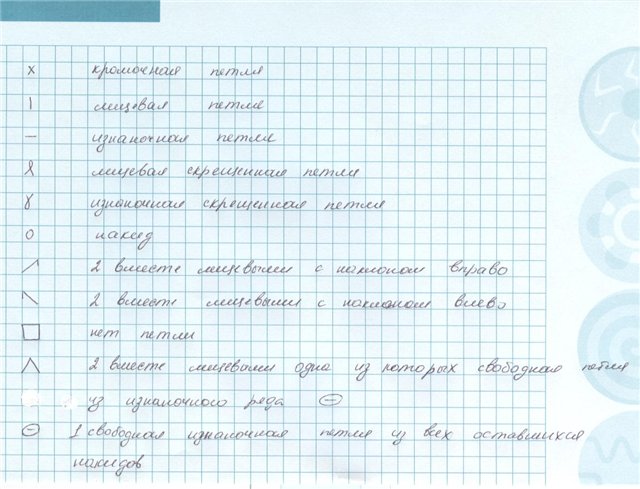 x кромочная петля
| лицевая петля
— изнаночная петля
ꝉ лицевая скрещенная петля
ɣ изнаночная скрещенная петля
o накид
⟋ 2 вместе лицевыми с наклоном вправо
\ 2 вместе лицевыми с наклоном влево
□ нет петли
∧ 2 вместе лицевыми одна из которых свободная петля
из изнаночного ряда ⊖
⊖ 1 свободная изнаночная петля из всех оставшихся
накидов